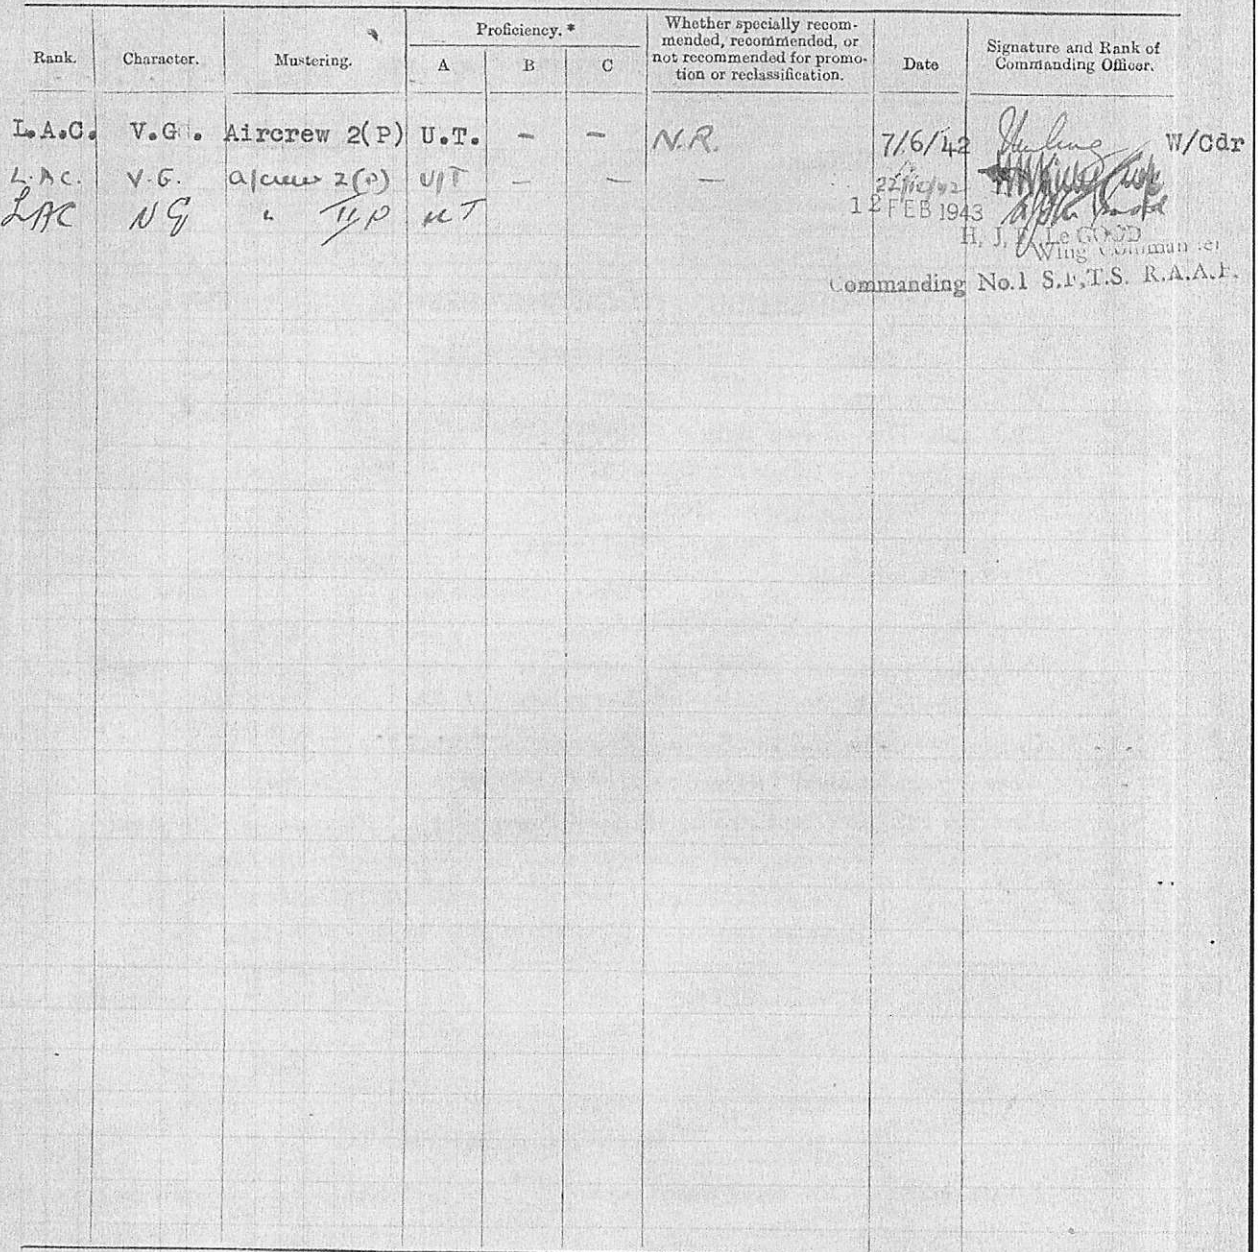 Rank. Character. Mustering. Proficiency. * A B C Whether specially recommended, recommended, or not recommended for promotion or reclassification. Date Signature and Rank of Commanding Officer.
L.A.C. V.G. Aircrew 2(P) U.T. – – N.R. 7/6/42 W/Cdr
L.AC. V.G. a/crew 2(P) U/T – – –
LAC VG " II P UT 12 FEB 1943
H. J. Le GOOD
Wing Commander
Commanding No.1 S.F.T.S. R.A.A.F.